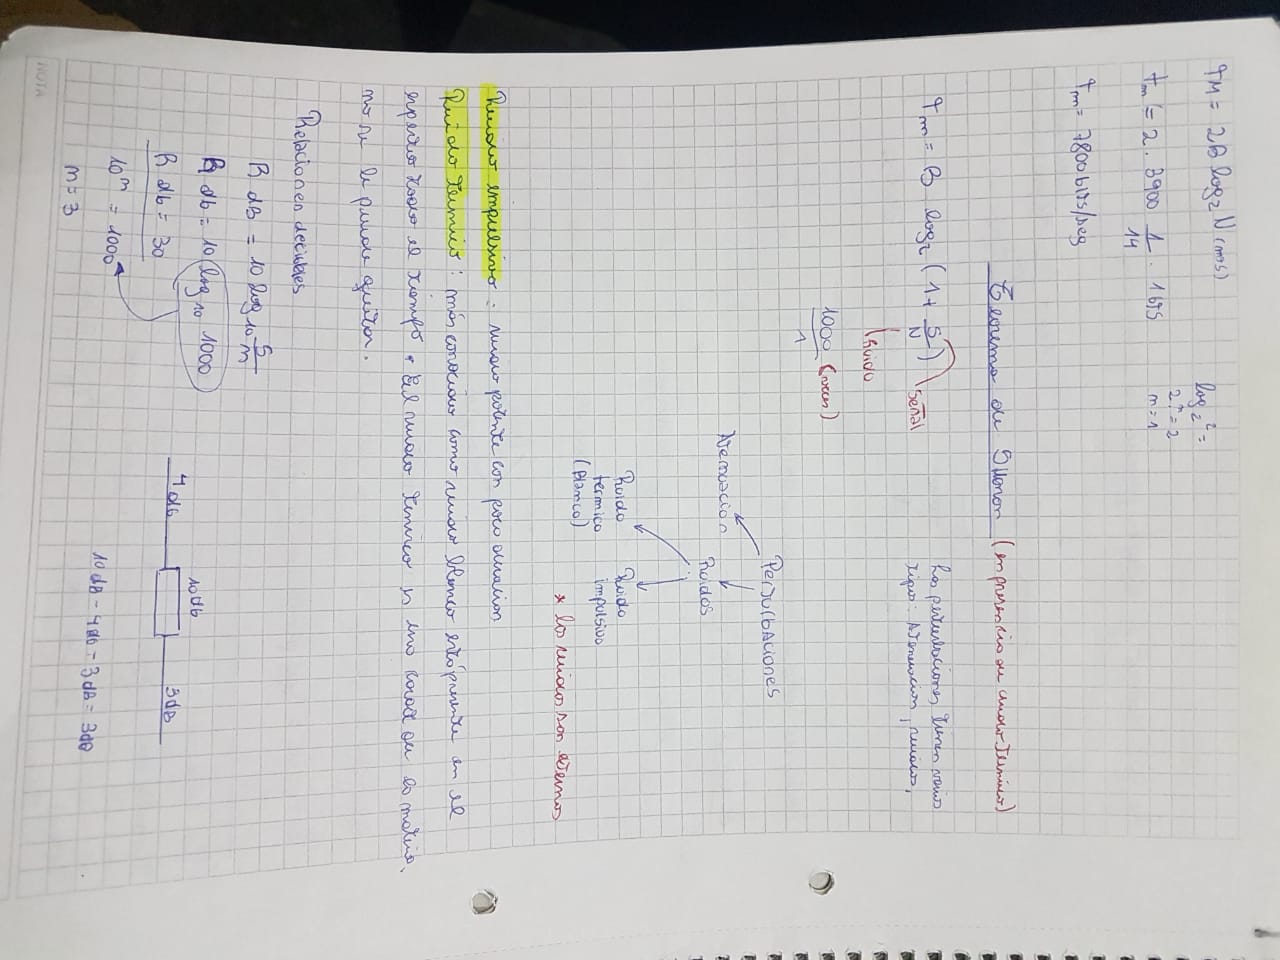 TM = 2B log₂ N (mos)
log₂² =
2ⁿ = 2
n = 1
tm = 2 . 3900 1/14 . 1 bits
Tm = 7800 bits/seg
Teorema de Shanon (en presencia de ruido termico)
Tm = B log₂ (1 + S/N)
Señal
Ruido
1000 (veces)
1
Las perturbaciones tienen varios
tipos: Atenuacion, ruidos,
Perturbaciones
Atenuación
Ruidos
Ruido
termico
(Blanco)
Ruido
impulsivo
* los ruidos son externos
Ruido impulsivo: ruido potente con poco duracion
Ruido termico: más conocido como ruido blanco está presente en el
espectro todo el tiempo. El ruido termico es de la materia.
no se le puede quitar.
Relaciones decibeles
R dB = 10 log₁₀ S/n
R db = 10 log₁₀ 1000
R db = 30
10ⁿ = 1000
n = 3
4 db
10 db
3 dB
10 dB - 4 db - 3 dB = 3dB
NOTA